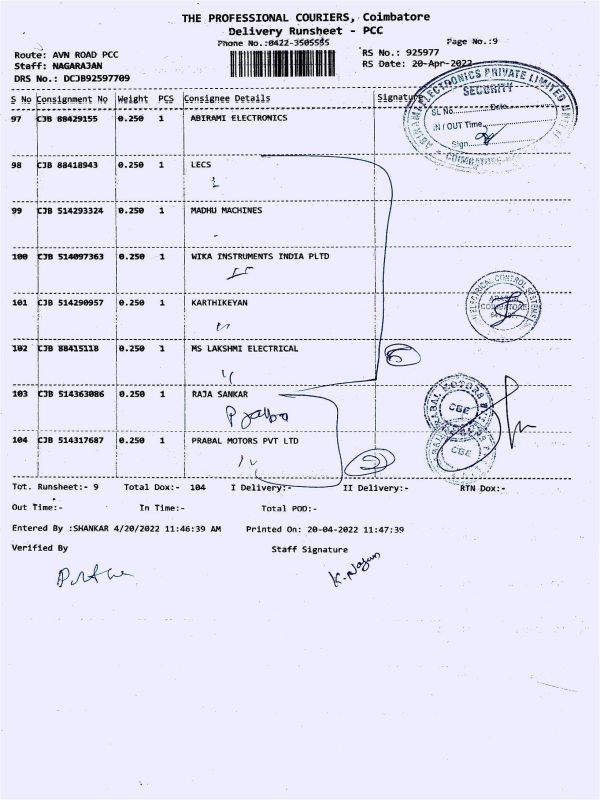 THE PROFESSIONAL COURIERS, Coimbatore
Delivery Runsheet - PCC
Phone No.:0422-3505555
Page No.:9
Route: AVN ROAD PCC
RS No.: 925977
Staff: NAGARAJAN
RS Date: 20-Apr-2022
DRS No.: DCJB92597709
S No Consignment No Weight PCS Consignee Details Signature
97 CJB 88429155 0.250 1 ABIRAMI ELECTRONICS
98 CJB 88418943 0.250 1 LECS
99 CJB 514293324 0.250 1 MADHU MACHINES
100 CJB 514097363 0.250 1 WIKA INSTRUMENTS INDIA PLTD
101 CJB 514290957 0.250 1 KARTHIKEYAN
102 CJB 88415118 0.250 1 MS LAKSHMI ELECTRICAL
103 CJB 514363086 0.250 1 RAJA SANKAR
104 CJB 514317687 0.250 1 PRABAL MOTORS PVT LTD
ELECTRONICS PRIVATE LIMITED
SECURITY
SL No. Date
IN / OUT Time
Sign
COIMBATORE
ELECTRICAL CONTROL SYSTEMS
5
CBE
CBE
2
Tot. Runsheet:- 9 Total Dox:- 104 I Delivery:- II Delivery:- RTN Dox:-
Out Time:- In Time:- Total POD:-
Entered By :SHANKAR 4/20/2022 11:46:39 AM Printed On: 20-04-2022 11:47:39
Verified By Staff Signature